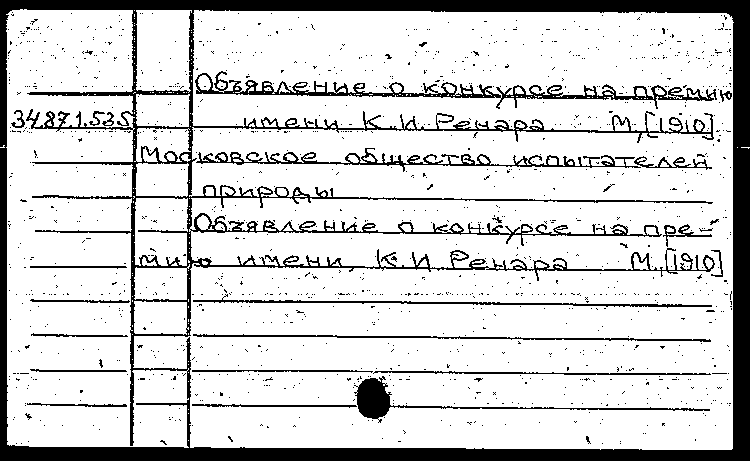 Объявление о конкурсе на премию
34.87.1.535 имени К.И. Ренара. М, [1910].
Московское общество испытателей
природы
Объявление о конкурсе на пре-
мию имени К.И Ренара М., [1910]